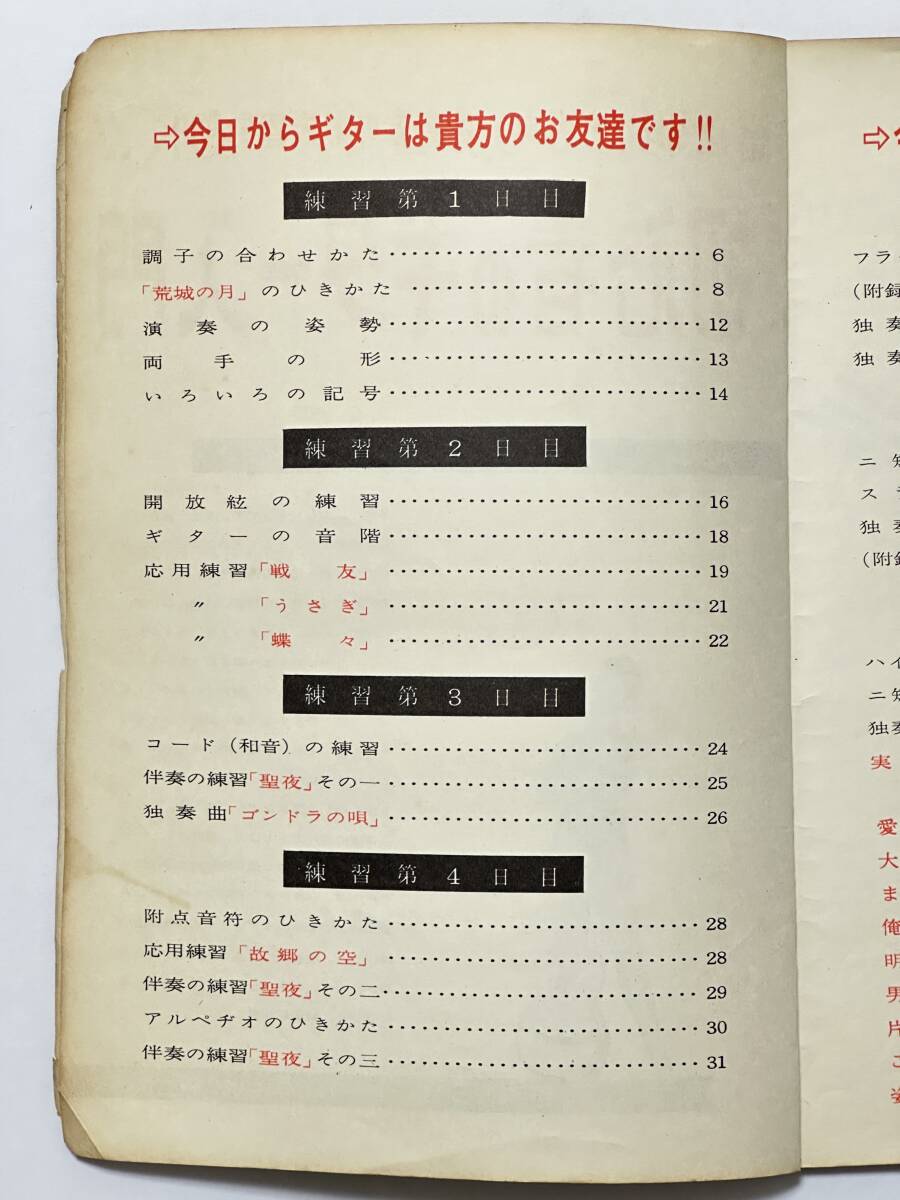 ⇨今日からギターは貴方のお友達です!!
練習第1日目
調子の合わせかた……………………………6
「荒城の月」のひきかた……………………………8
演奏の姿勢……………………………12
両手の形……………………………13
いろいろの記号……………………………14
練習第2日目
開放絃の練習……………………………16
ギターの音階……………………………18
応用練習「戦友」……………………………19
〃「うさぎ」……………………………21
〃「蝶々」……………………………22
練習第3日目
コード(和音)の練習……………………………24
伴奏の練習「聖夜」その一……………………………25
独奏曲「ゴンドラの唄」……………………………26
練習第4日目
附点音符のひきかた……………………………28
応用練習「故郷の空」……………………………28
伴奏の練習「聖夜」その二……………………………29
アルペヂオのひきかた……………………………30
伴奏の練習「聖夜」その三……………………………31
⇨
フラ
(附録
独奏
独奏
ニ短
ス
独奏
(附録
ハイ
ニ短
独奏
実
愛
大
ま
俺
明
男
片
こ
姿